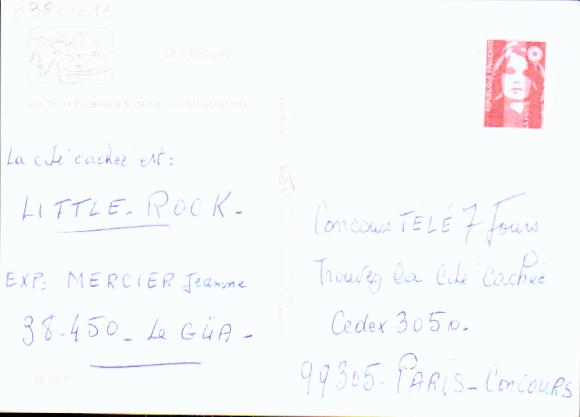 038000 11
LE VERCORS
Les Trois Pucelles à St-Nizier-du-Moucherotte
REPUBLIQUE FRANÇAISE
LA POSTE
La cité cachée est:
LITTLE-ROCK-
EXP: MERCIER Jeanne
38-450- Le GÜA-
Concours TÉLÉ 7 Jours
Trouvez la cité cachée
Cedex 3050-
99305- PARIS-CONCOURS